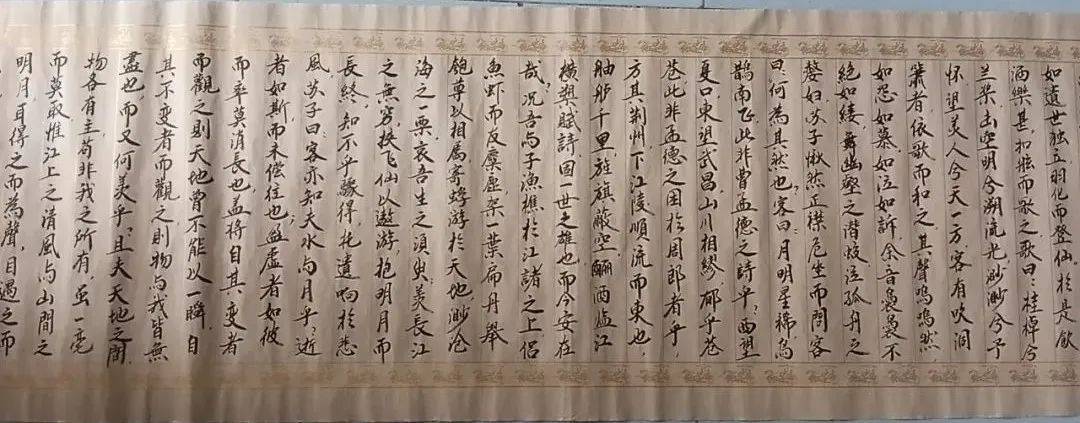 如遺世独立羽化而登仙。於是飲
酒樂甚,扣舷而歌之歌曰:桂棹兮
兰桨击空明兮溯流光渺渺兮予
怀望美人兮天一方。客有吹洞
簫者依歌而和之其聲嗚嗚然
如怨如慕如泣如訴余音裊裊不
绝如缕舞幽壑之潜蛟泣孤舟之
嫠妇。苏子愀然正襟危坐而問客
曰:何為其然也?客曰:月明星稀烏
鵲南飞此非曹孟德之詩乎?西望
夏口東望武昌,山川相繆,郁乎苍
苍此非孟德之困於周郎者乎,
方其荆州,下江陵,順流而東也,
舳舻千里,旌旗蔽空,釃酒临江
横槊賦詩,固一世之雄也而今安在
哉?况吾与子漁樵於江諸之上侣
魚虾而友麋鹿,架一葉扁丹舉
匏尊以相属寄蜉游於天地,渺沧
海之一栗,哀吾生之須臾,羡長江
之無穷,挾飞仙以遨游,抱明月而
長終,知不乎驟得,托遺响於悲
風,苏子曰:客亦知夫水与月乎?逝
者如斯而未偿往也,盈虚者如彼
而卒莫消長也,盖将自其变者
而觀之则天地曾不能以一瞬,自
其不变者而觀之則物与我皆無
盡也,而又何羡乎?且夫天地之間
物各有主苟非我之所有,虽一毫
而莫取惟江上之清風与山間之
明月,耳得之而為聲,目遇之而